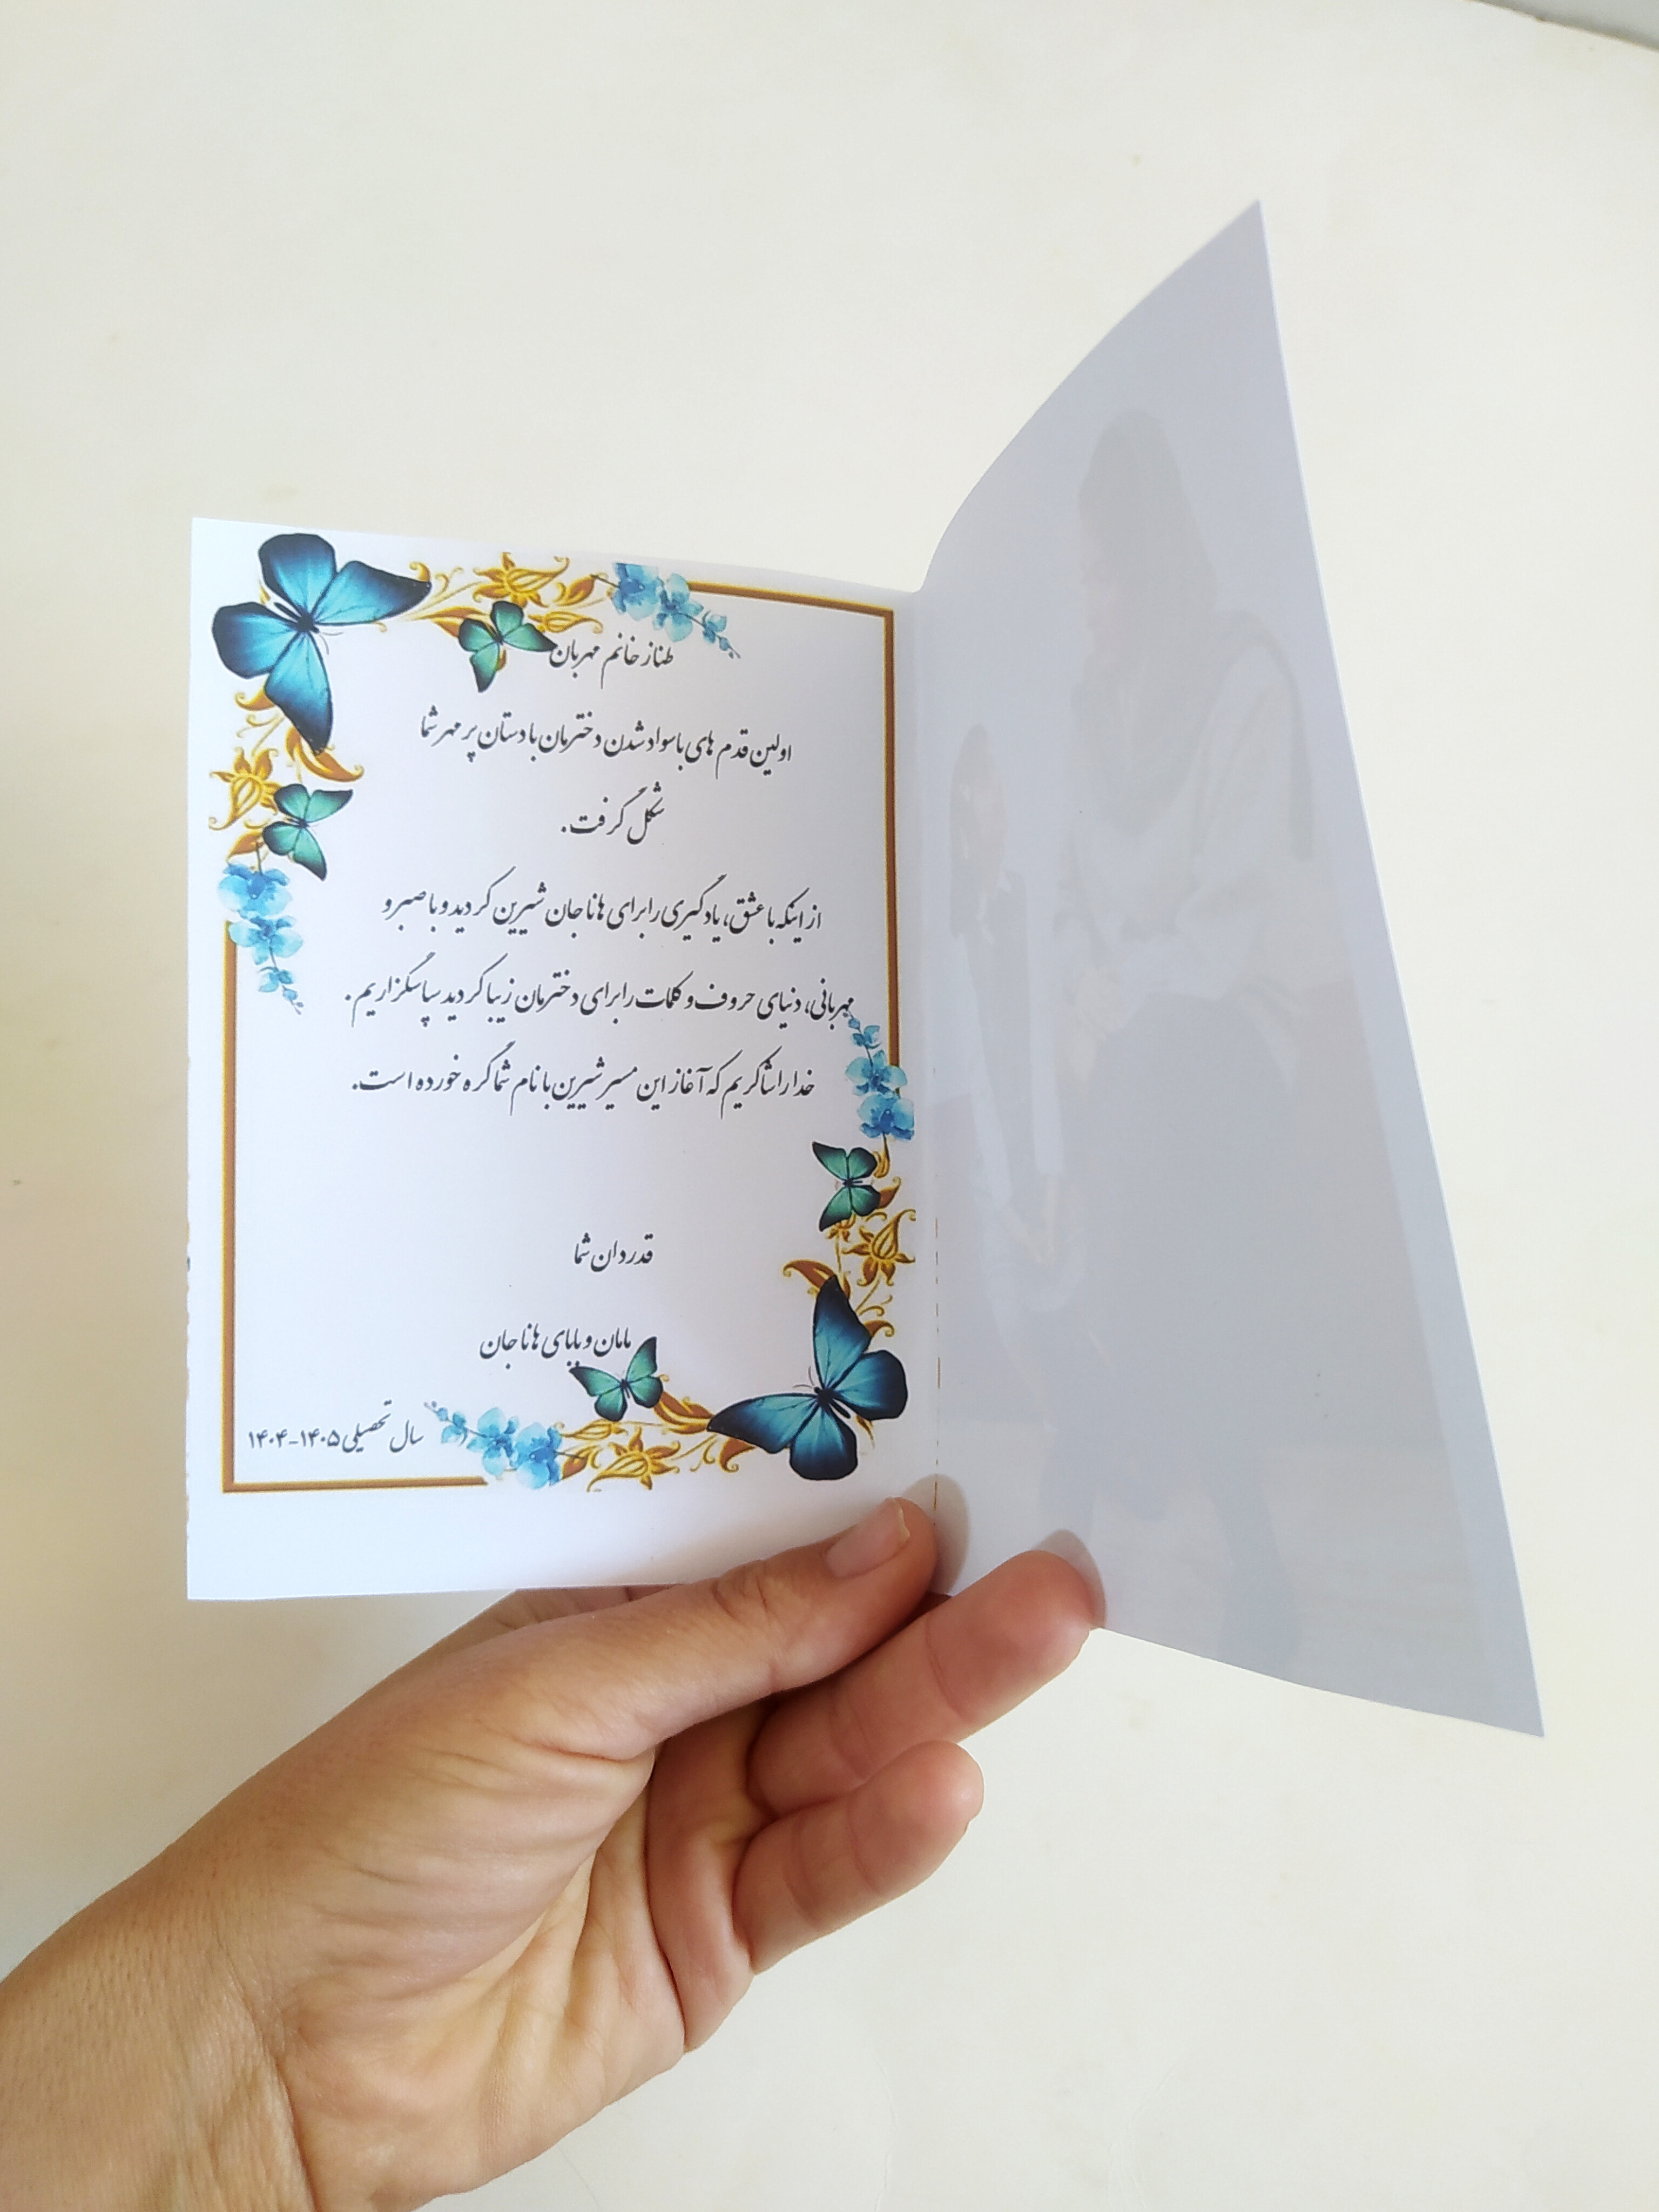 طناز خانم مهربان
اولین قدم های باسواد شدن دخترمان با دستان پر مهر شما
شکل گرفت.
از اینکه با عشق، یادگیری را برای هانا جان شیرین کردید و با صبر و
مهربانی، دنیای حروف و کلمات را برای دخترمان زیبا کردید سپاسگزاریم.
خدا را شاکریم که آغاز این مسیر شیرین با نام شما گره خورده است.
قدردان شما
مامان و بابای هانا جان
سال تحصیلی ۱۴۰۵-۱۴۰۴